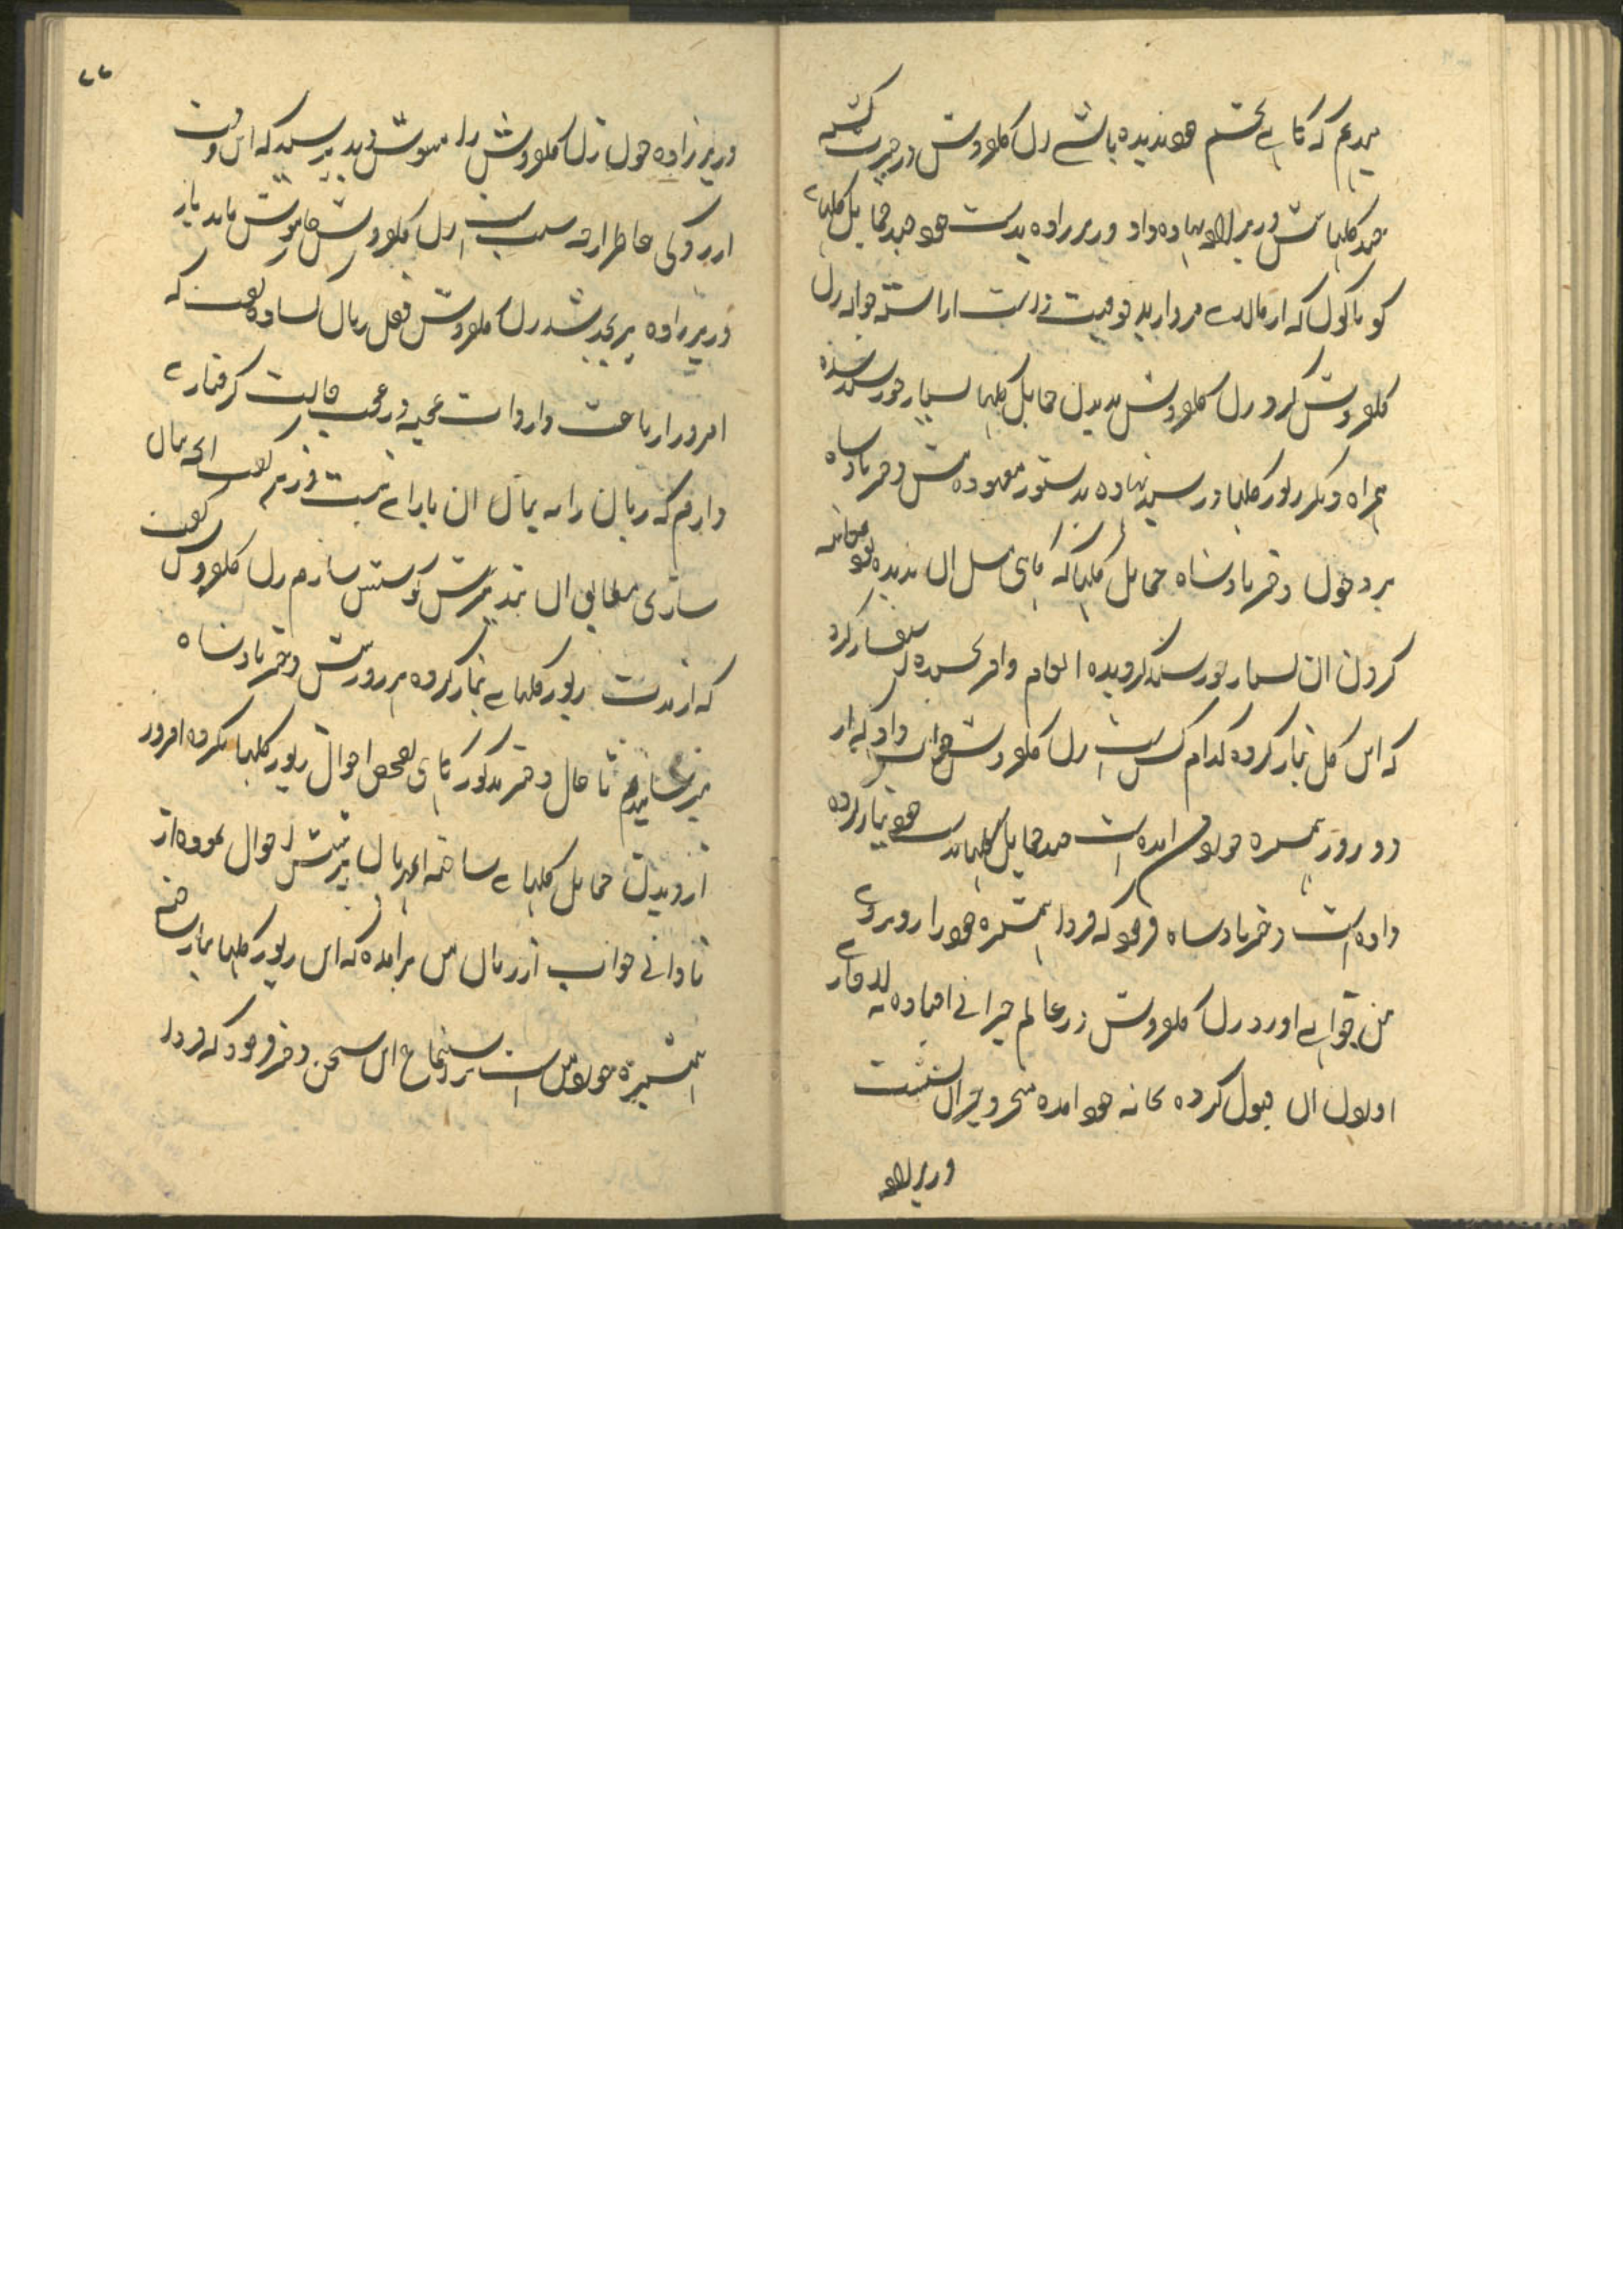 میدهم که گاهی بچشم خود ندیده باشی زن گلفروش در حیرت گشته
چند گلها پیش وزیرزاده نهاده داد وزیرزاده بدست خود چند حمایل گلهای
گوناگون که از مالای مروارید خوبیت آراسته حواله زن
گلفروش کرد زن گلفروش بدیدن حمایل گلها بسیار خورسند شده
همراه دیگر زیور گلها در سبد نهاده بدستور معهوده پیش دختر پادشاه
برد چون دختر پادشاه حمایل گلها که گاهی مثل آن ندیده بود
کردن آن بسیار خورسند گردیده انعام وافر بخشیده استفسار کرد
که این گل تیار کرده کدام کس است زن گلفروش جواب داد که از
دو روز همشیره خوردم آمده است چند حمایل گلها بدست خود تیار کرده
داده است دختر پادشاه فرمود که فردا همشیره خود را روبروی
من خواهی آورد زن گلفروش در عالم حیرانی افتاده لاچار
قبول کرده بخانه خود آمده متحیر و حیران نشست
وزیرزاده
۷۷
وزیرزاده چون زن گلفروش را مشوش دید پرسید که این وقت
خاطر از چه سبب است زن گلفروش خاموش ماند باز
وزیرزاده بجد شد زن گلفروش قفل زبان گشاده گفت که
امروز از باعث واردات عجیبه در عجب حالت گرفتاری
دارم که زبان را به بیان آن یارای نیست وزیر گفت اگر بیان
سازی مطابق آن تدبیرش کوشش سازم زن گلفروش گفت
که از مدت زیور گلهای تیار کرده هر روز پیش دختر پادشاه
میرسانیدم تا حال دختر مذکور گاهی تفحص احوال زیور گلها نکرده امروز
از دیدن حمایل گلهای ساخته پرسش احوال نموده از
نادانی جواب از زبان من برآمده که این زیور گلها تیار ساخته
همشیره خورد من است بر استماع این سخن دختر فرمود که فردا